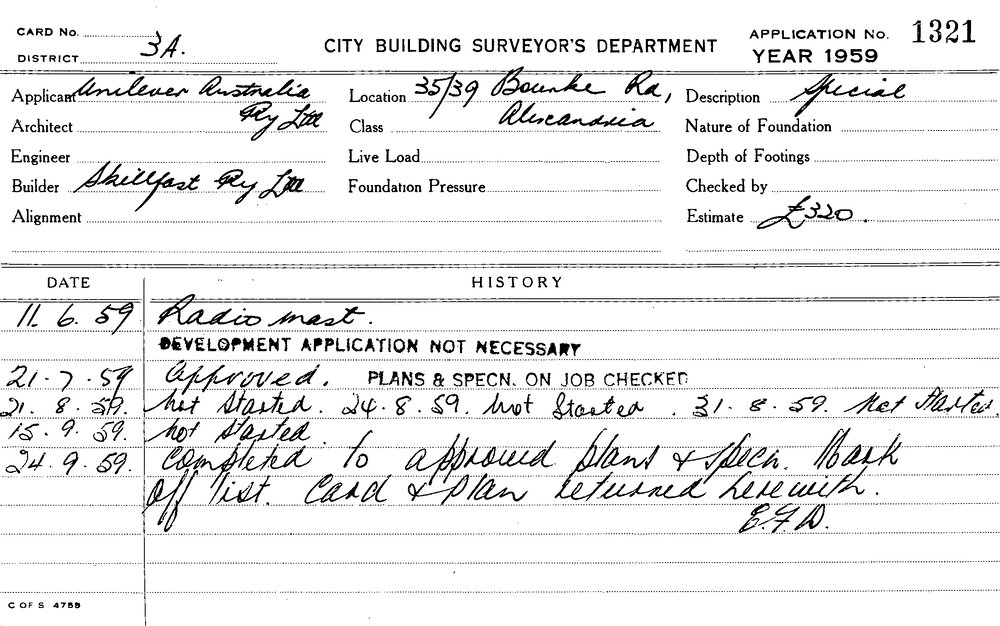 CARD No.
DISTRICT 3A.
CITY BUILDING SURVEYOR'S DEPARTMENT
APPLICATION No. 1321
YEAR 1959
Applicant Unilever Australia Pty Ltd
Architect
Engineer
Builder Skillfast Pty Ltd
Alignment
Location 35/39 Bourke Rd, Alexandria
Class
Live Load
Foundation Pressure
Description Special
Nature of Foundation
Depth of Footings
Checked by
Estimate £320.
DATE HISTORY
11. 6. 59 Radio mast.
DEVELOPMENT APPLICATION NOT NECESSARY
21. 7. 59 Approved. PLANS & SPECN. ON JOB CHECKED
21. 8. 59. Not Started. 24. 8. 59. Not Started. 31. 8. 59. Not Started.
15. 9. 59. Not Started.
24. 9. 59. Completed to approved plans & specn. Mark
off list. Card & Plan returned herewith.
E.F.D.
C OF S 4759